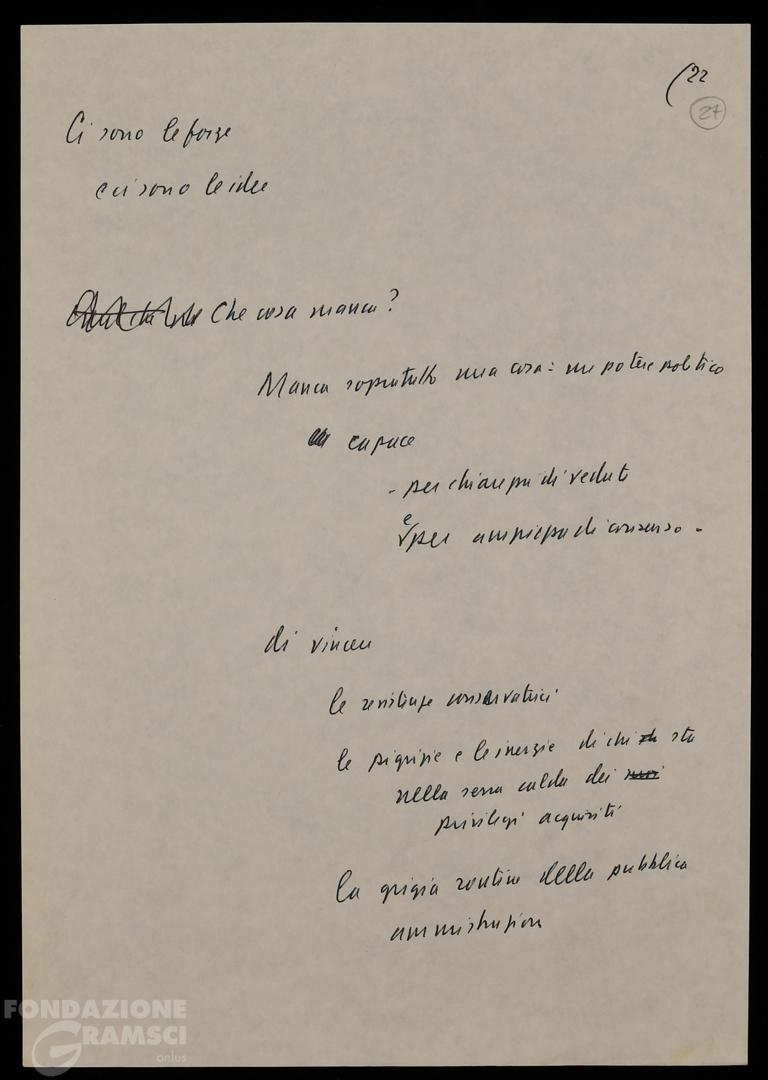 (22
27
Ci sono le forze
e ci sono le idee
Che cosa manca?
Manca sopratutto una cosa: un potere politico
capace
- per chiarezza di vedute
e per ampiezza di consenso -
di vincere
le resistenze conservatrici
le pigrizie e le inerzie di chi sta
nella serra calda dei
privilegi acquisiti
la grigia routine della pubblica
amministrazione
FONDAZIONE
GRAMSCI
onlus